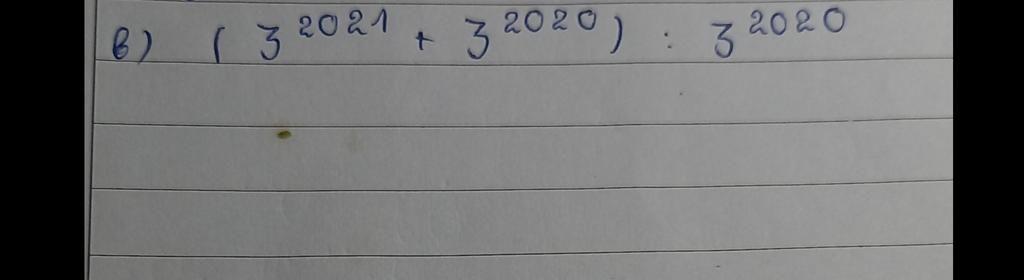 в) (3²⁰²¹ + 3²⁰²⁰) : 3²⁰²⁰